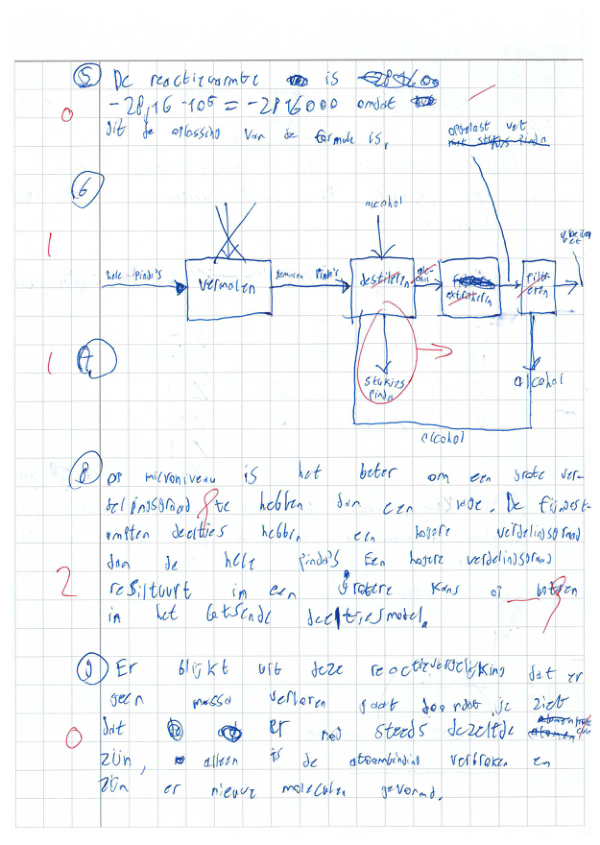 5 De reactiewarmte is
0 -28,16 · 10⁵ = -2816000 omdat
dit de oplossing van de formule is.
opgelost vet
6
alcohol
1
hele Pinda's
vermalen
gemalen Pinda's
destilleren
extraheren
filtreren
1 7
stukjes
Pinda
alcohol
alcohol
8 op microniveau is het beter om een grote ver-
delingsgraad te hebben dan een lage. De fijngest-
ampten deeltjes hebben een hogere verdelingsgraad
dan de hele Pinda's. Een hogere verdelingsgraad
2 resulteert in een grotere kans op botsen
in het botsende deeltjesmodel.
9 Er blijkt uit deze reactievergelijking dat er
geen massa verloren gaat doordat je ziet
0 dat er nog steeds dezelfde
zijn, alleen is de atoombinding verbroken en
zijn er nieuwe moleculen gevormd.